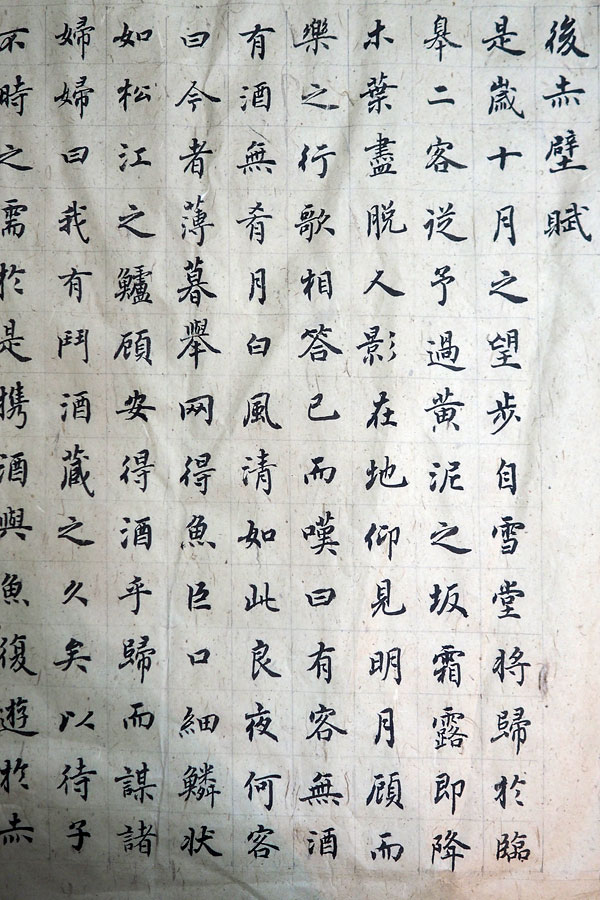 後赤壁賦
是歲十月之望步自雪堂將歸於臨
皋二客從予過黃泥之坂霜露即降
木葉盡脫人影在地仰見明月顧而
樂之行歌相答已而嘆曰有客無酒
有酒無肴月白風清如此良夜何客
曰今者薄暮舉网得魚巨口細鱗状
如松江之鱸顧安得酒乎歸而謀諸
婦婦曰我有鬥酒藏之久矣以待子
不時之需於是携酒與魚復遊於赤